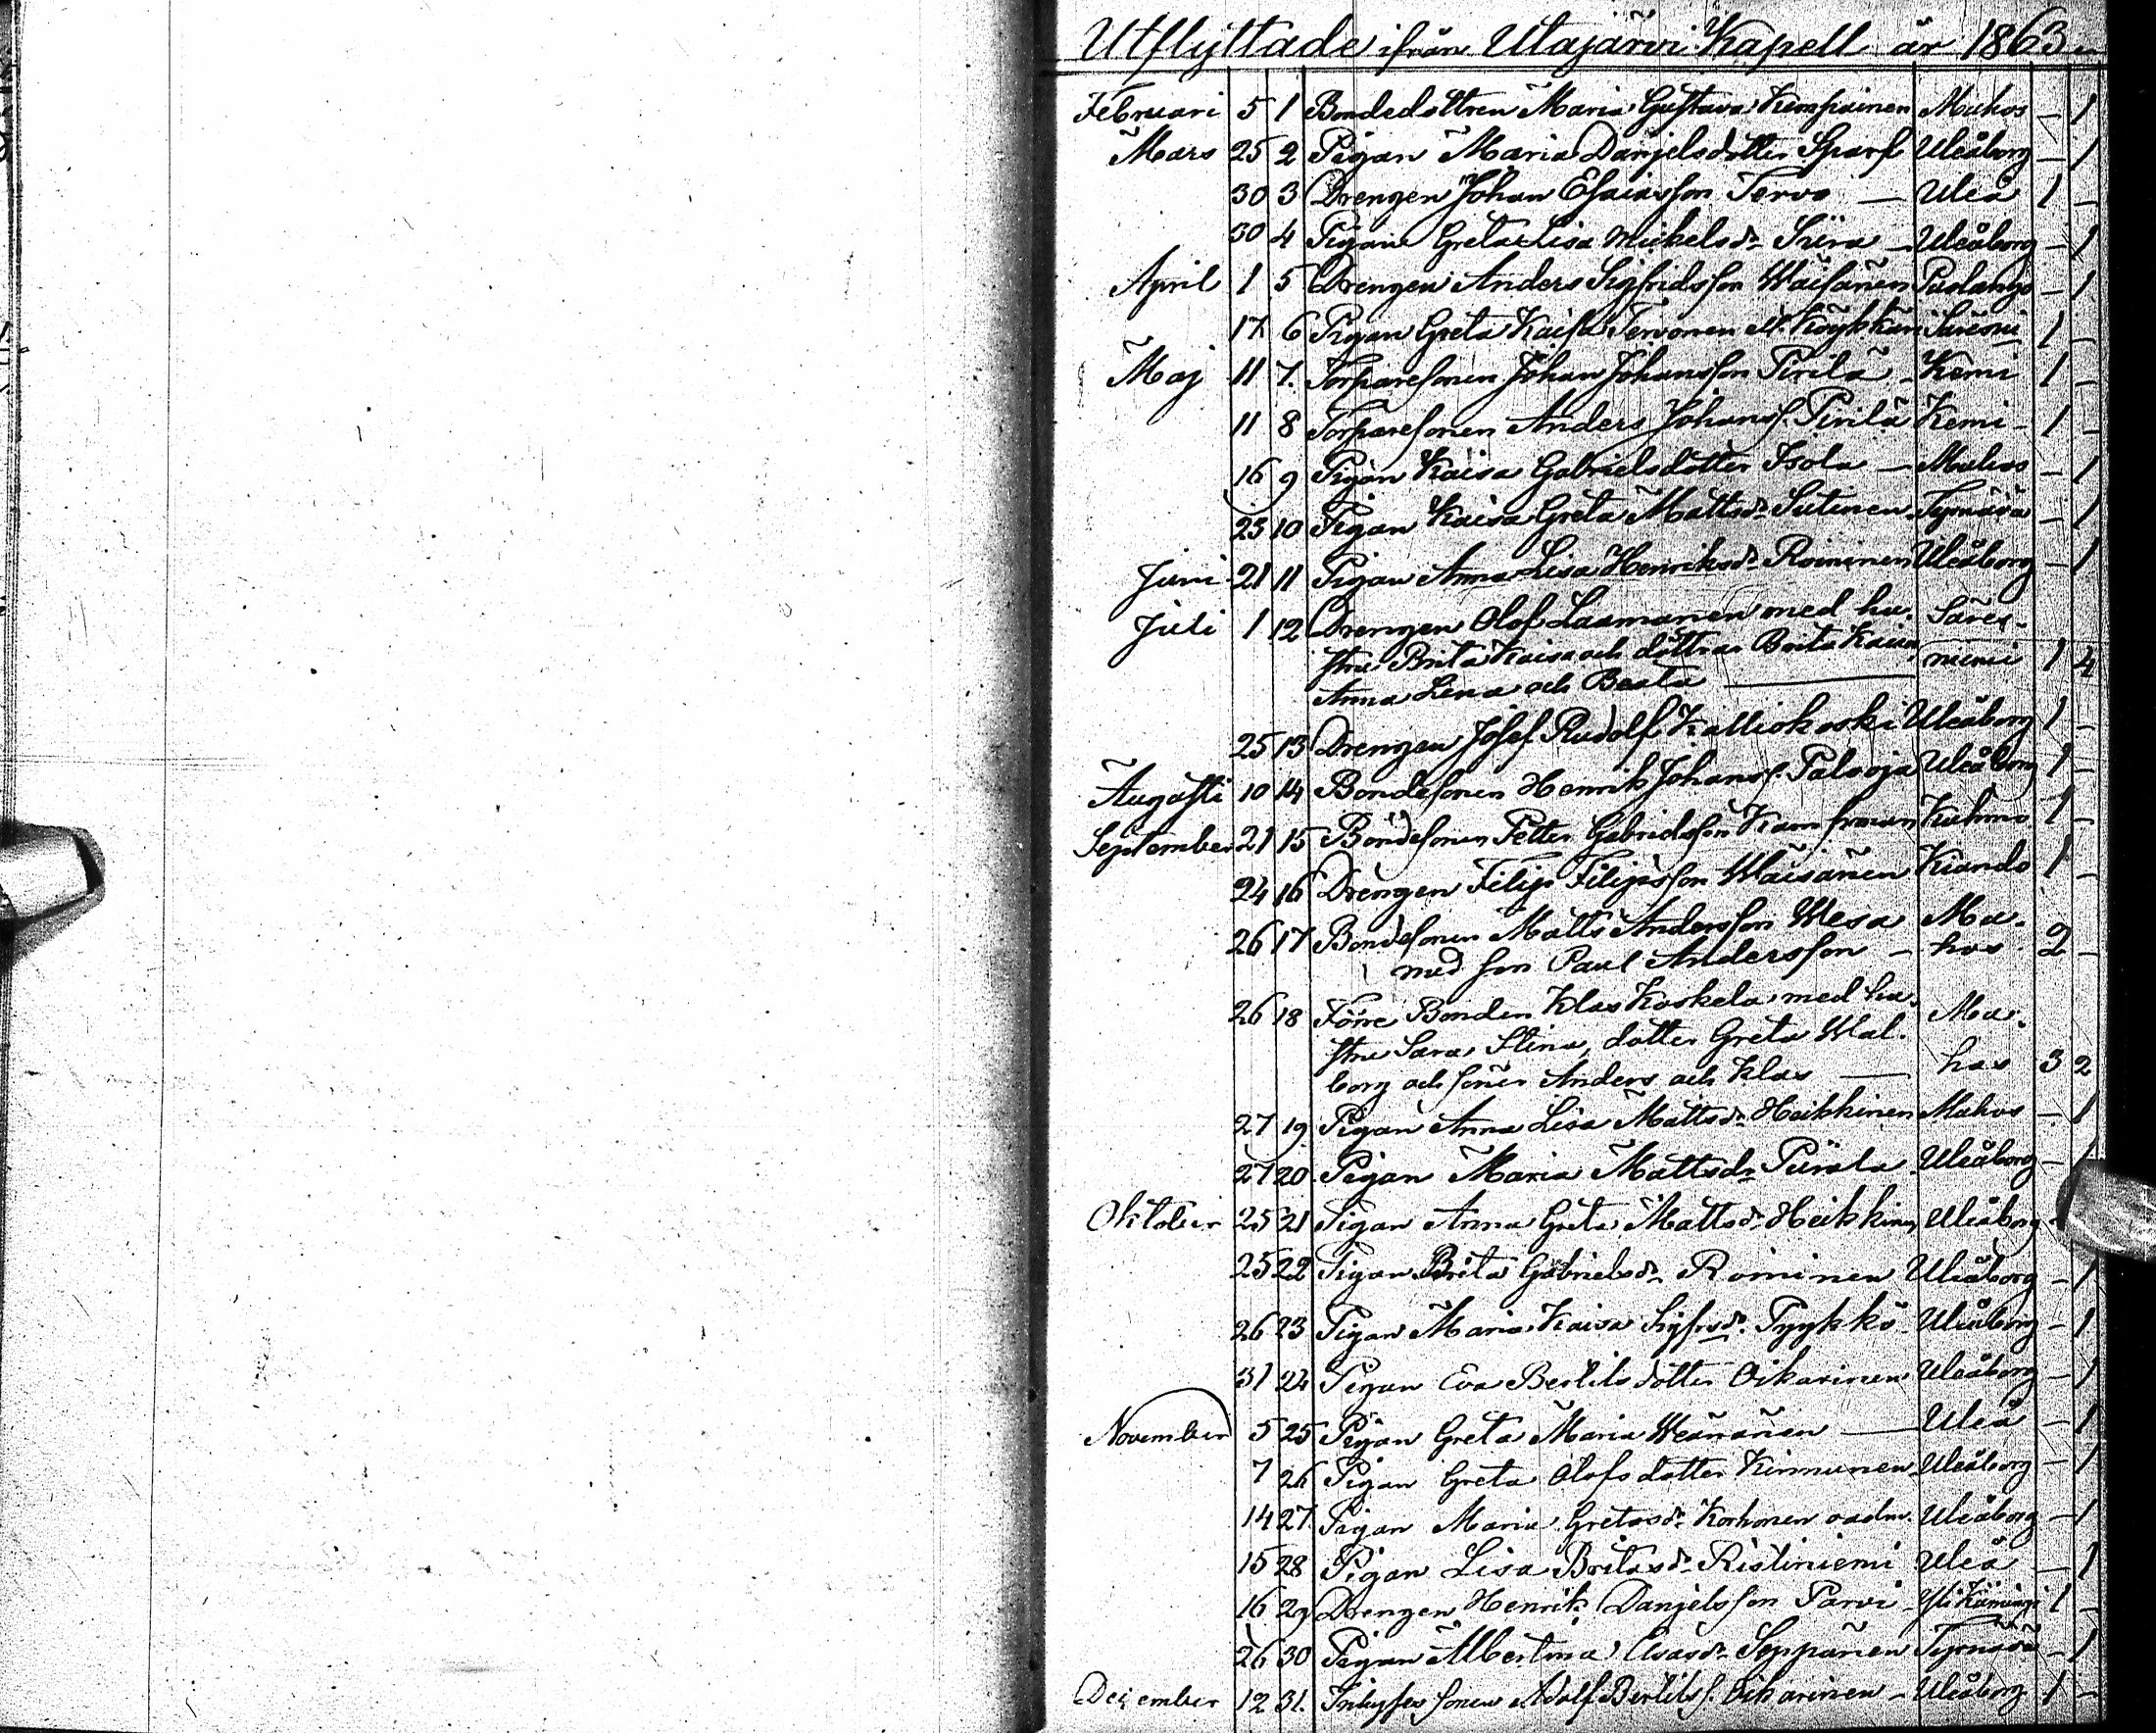 Utflyttade ifrån Utajärvi Kapell år 1863
Februari 5 1 Bondedottren Maria Gustava Kempainen Muhos – 1
Mars 25 2 Pigan Maria Danjelsdotter Sparf Uleåborg – 1
30 3 Drengen Johan Esaiasson Tervo – Uleå 1 –
30 4 Pigan Greta Lisa Mickelsdr Siira – Uleåborg – 1
April 1 5 Drengen Anders Sigfridsson Wäisänen Puolango – 1
17 6 Pigan Greta Kaisa Tervonen 1 –
Maj 11 7. Torparesonen Johan Johansson Pirilä – Kemi 1 –
11 8 Torparesonen Anders Johanss. Pirilä Kemi – 1 –
16 9 Pigan Kaisa Gabrielsdotter Isola – Muhos – 1
23 10 Pigan Kaisa Greta Mattsdr Sutinen Tyrnävä – 1
Juni 21 11 Pigan Anna Lisa Henriksdr Roininen Uleåborg – 1
Juli 1 12 Drengen Olof Laamanen med hu- Säräis-
stru Brita Kaisa och döttrar Brita Kaisa, niemi 1 4
Anna Lena och Beata –
25 13 Drengen Josef Rudolf Kalliokoski Uleåborg 1 –
Augusti 10 14 Bondesonen Henrik Johanss. Palooja Uleåborg 1 –
September 21 15 Bondesonen Petter Gabrielsson Kuhmo 1 –
24 16 Drengen Filip Filipsson Wäisänen Kiando 1 –
26 17 Bondesonen Matts Andersson Wesa Mu-
med son Paul Andersson – hos 2 –
26 18 Förre Bonden Klas Koskela med hu- Mu-
stru Sara Stina, dotter Greta Wal-
borg och söner Anders och Klas – hos 3 2
27 19. Pigan Anna Lisa Mattsdr Heikkinen Muhos – 1
27 20. Pigan Maria Mattsdr Uleåborg –
Oktober 25 21 Pigan Anna Greta Mattsdr Heikkinen Uleåborg
25 22 Pigan Brita Gabrielsdr Roininen Uleåborg – 1
26 23 Pigan Maria Kaisa Sigfrsdr Pyykkö Uleåborg – 1
31 24 Pigan Eva Bertilsdotter Oikarinen Uleåborg – 1
November 5 25 Pigan Greta Maria Wäänänen – Uleå – 1
7 26 Pigan Greta Olofsdotter Kinnunen Uleåborg – 1
14 27 Pigan Maria Gretasdr Korhonen oadm. Uleåborg – 1
15 28 Pigan Lisa Britasdr Ristiniemi Uleå – 1
16 29 Drengen Henrik Danjelsson Parvi – Yli Kiimingi 1 –
26 30 Pigan Albertina Evasdr Seppänen Tyrnävä – 1
December 12 31. Inhyses sonen Adolf Bertilss. Oikarinen – Uleåborg 1 –